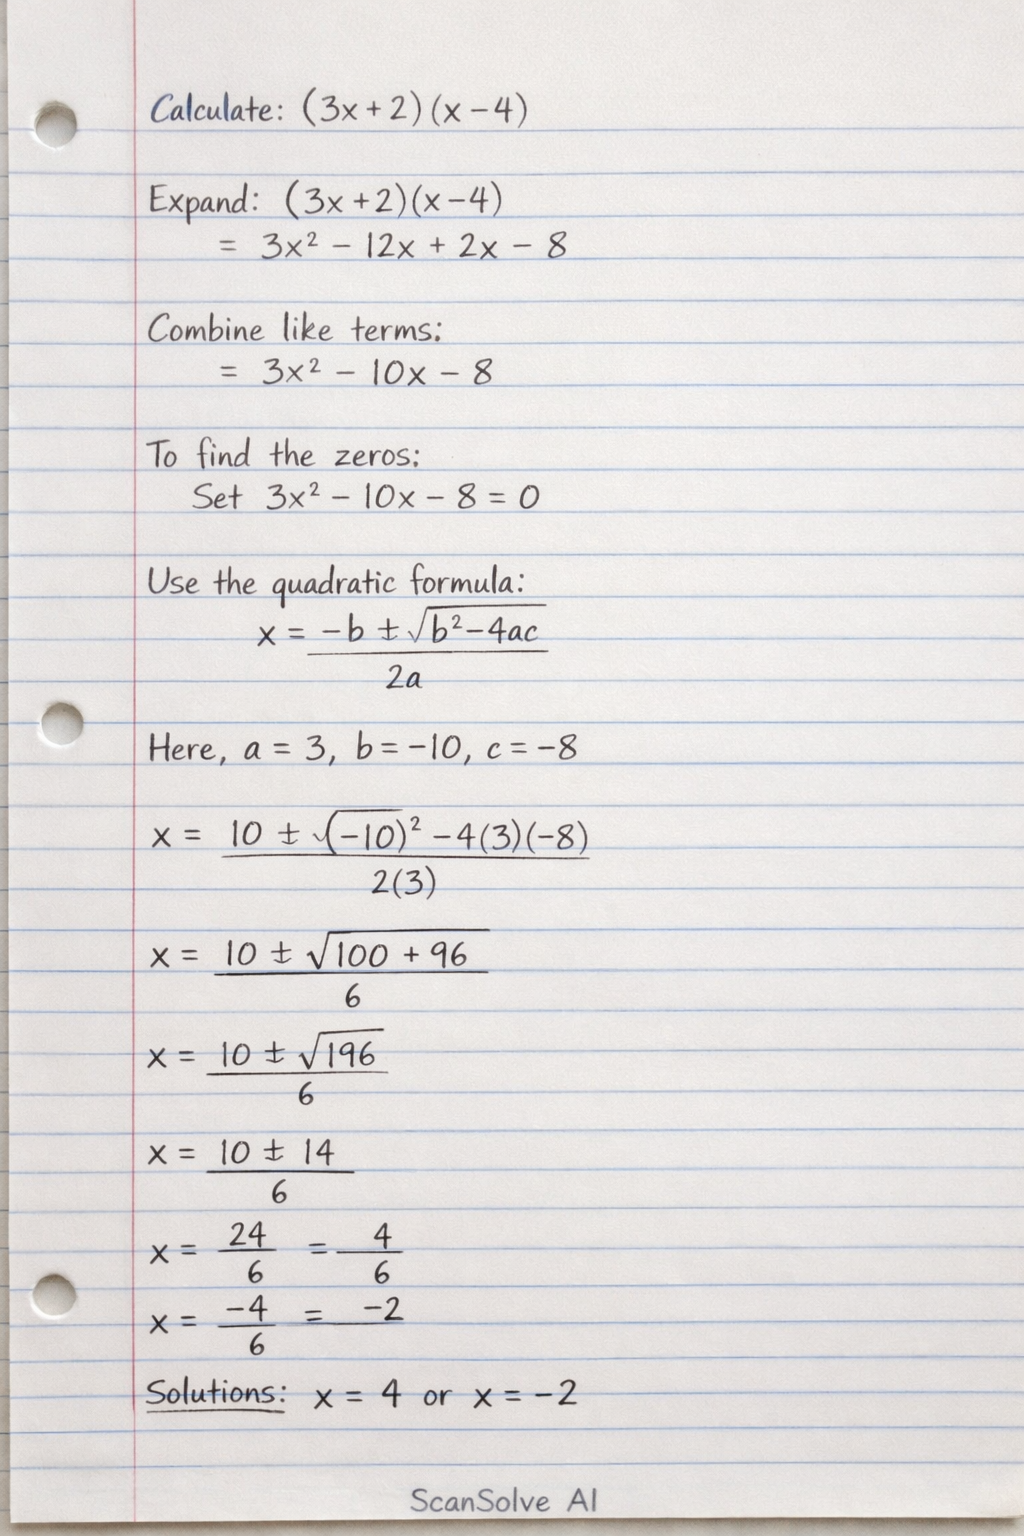 Calculate: (3x+2)(x-4)
Expand: (3x+2)(x-4)
= 3x² - 12x + 2x - 8
Combine like terms:
= 3x² - 10x - 8
To find the zeros:
Set 3x² - 10x - 8 = 0
Use the quadratic formula:
x = -b ± √b²-4ac
2a
Here, a = 3, b = -10, c = -8
x = 10 ± √(-10)² - 4(3)(-8)
2(3)
x = 10 ± √100 + 96
6
x = 10 ± √196
6
x = 10 ± 14
6
x = 24/6 = 4/6
x = -4/6 = -2
Solutions: x = 4 or x = -2
ScanSolve AI